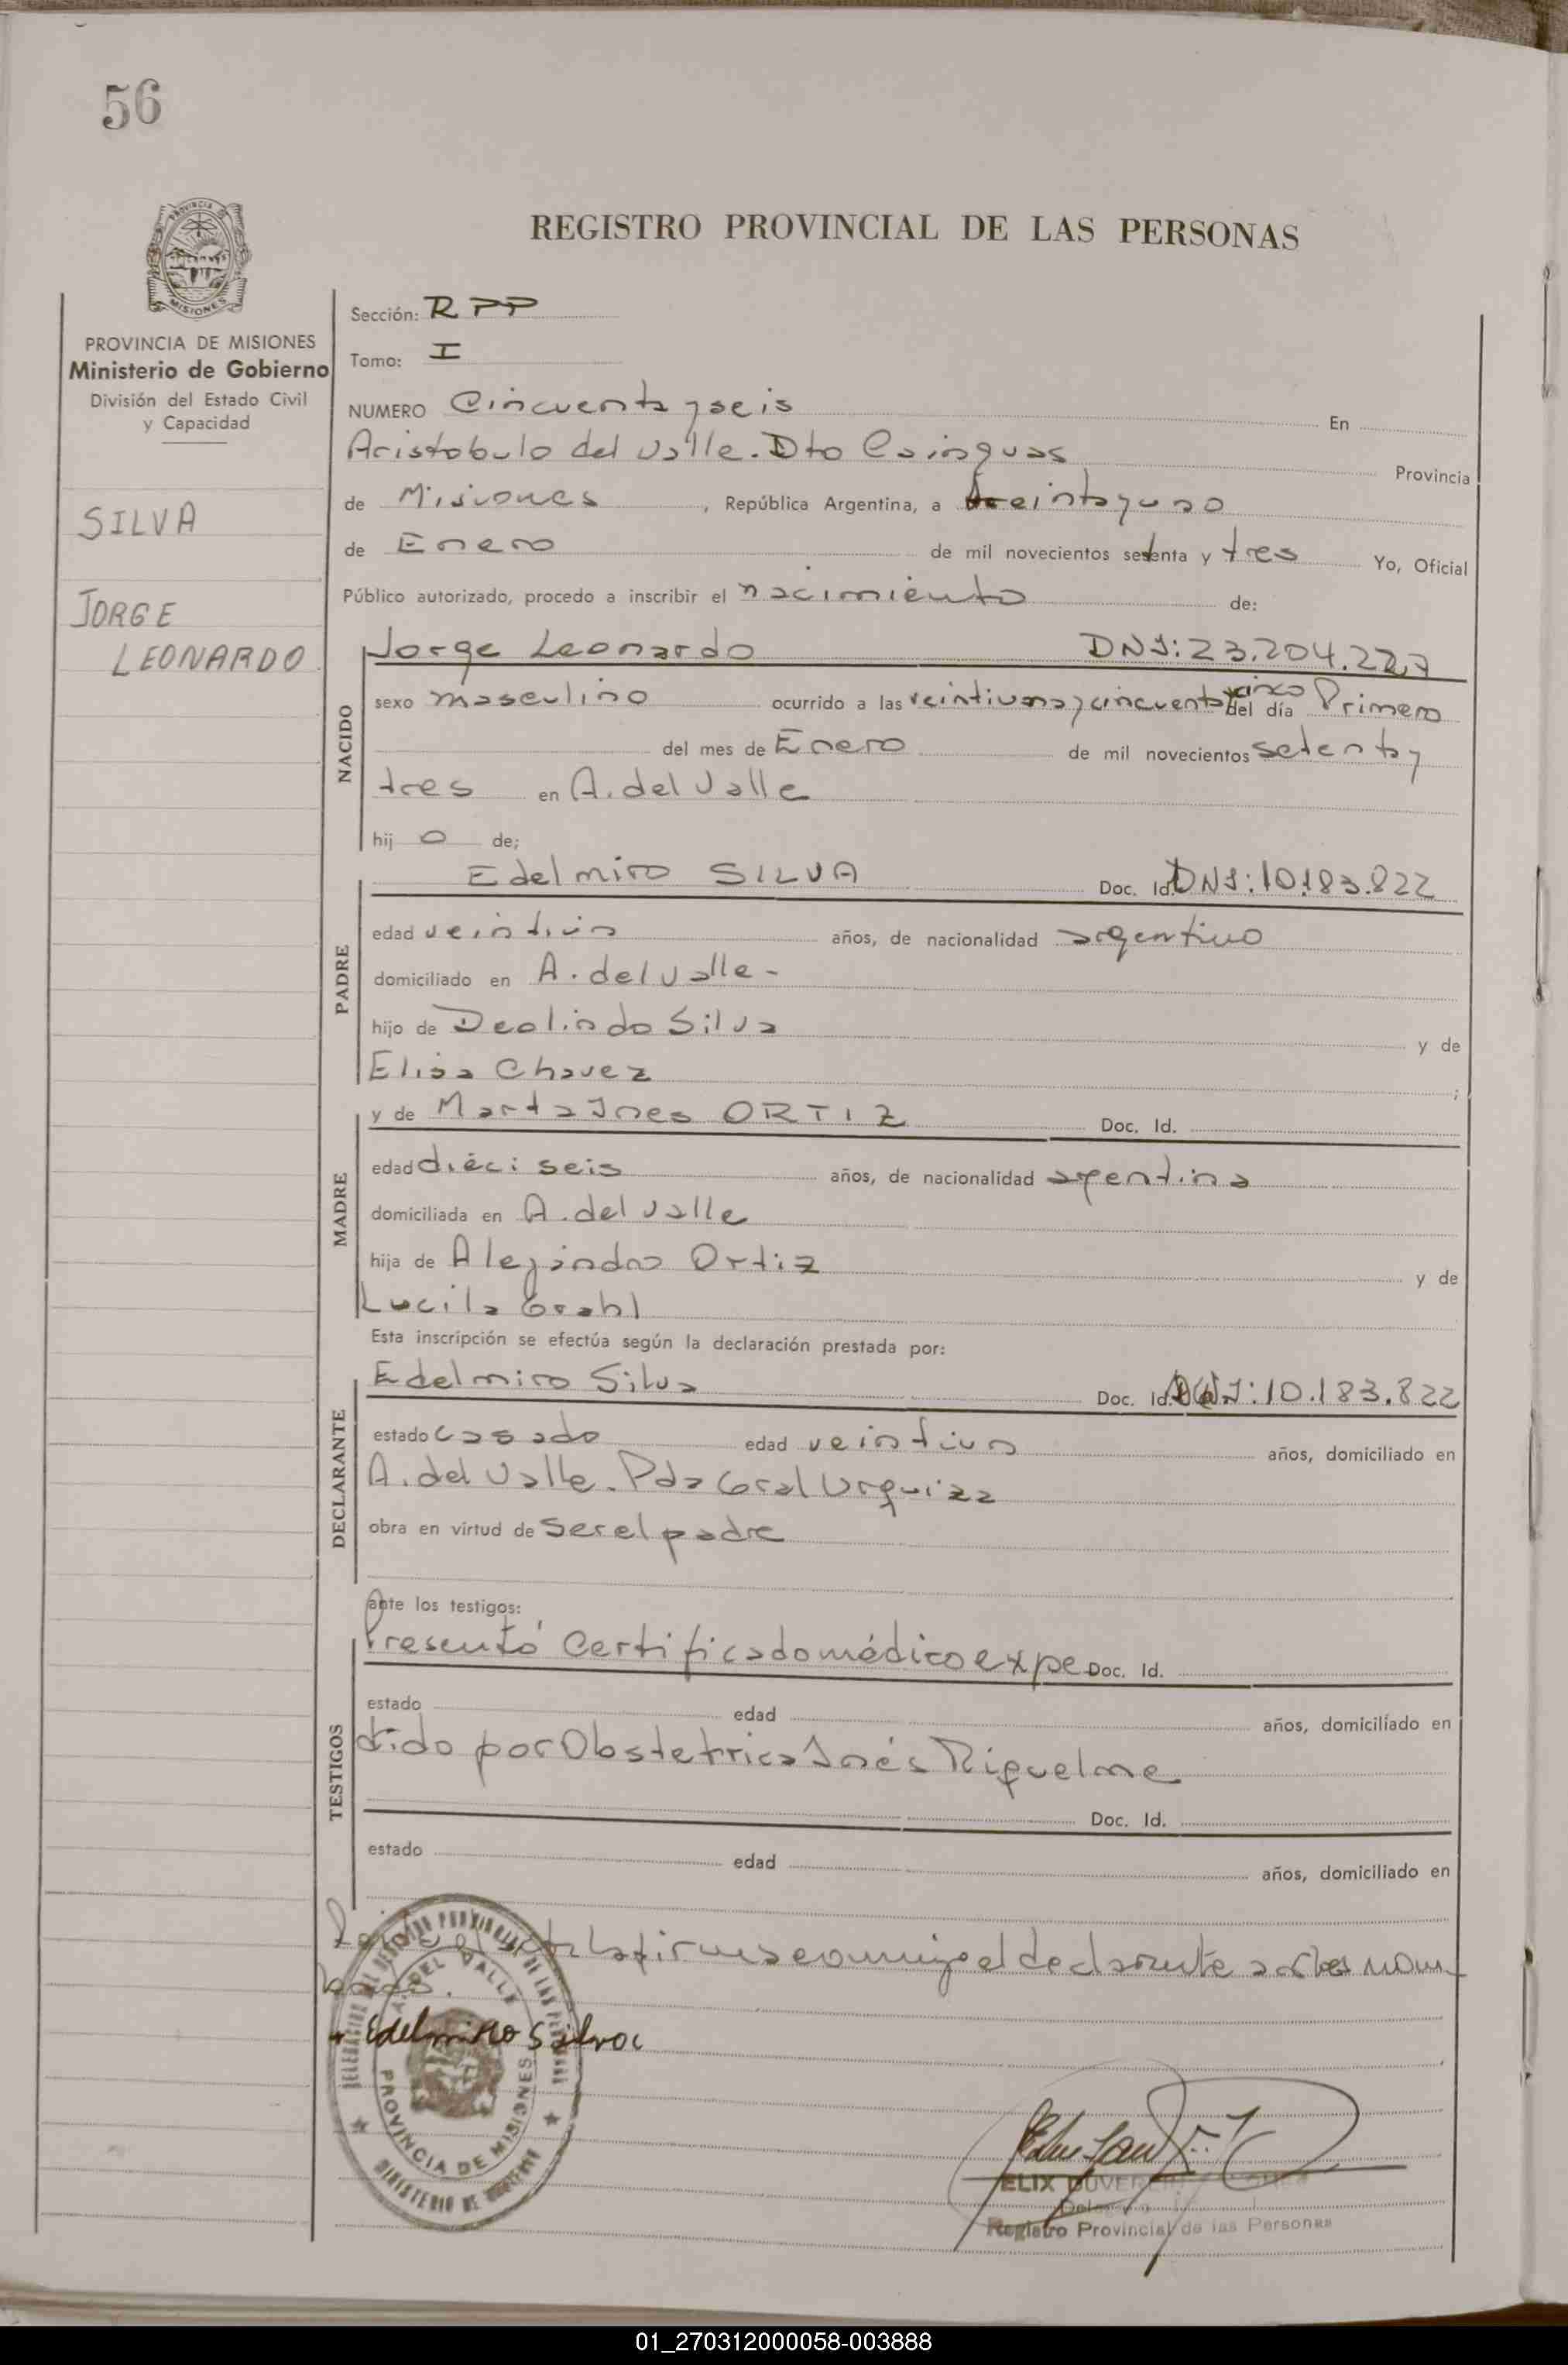 56
REGISTRO PROVINCIAL DE LAS PERSONAS
PROVINCIA DE MISIONES
Ministerio de Gobierno
División del Estado Civil
y Capacidad
SILVA
JORGE
LEONARDO
Sección: RPP
Tomo: I
NUMERO Cincuenta y seis En
Aristobulo del Valle. Dto Cainguas Provincia
de Misiones, República Argentina, a treinta y uno
de Enero de mil novecientos setenta y tres Yo, Oficial
Público autorizado, procedo a inscribir el nacimiento de:
NACIDO
Jorge Leonardo DNI: 23.204.227
sexo masculino ocurrido a las veintiuna y cincuenta y cinco del día Primero
del mes de Enero de mil novecientos setenta y
tres en A. del Valle
hij o de;
PADRE
Edelmiro SILVA Doc. Id. DNI: 10.183.822
edad veintiun años, de nacionalidad argentino
domiciliado en A. del Valle-
hijo de Deolindo Silva y de
Elisa Chavez ;
MADRE
y de Marta Ines ORTIZ Doc. Id.
edad dieciseis años, de nacionalidad argentina
domiciliada en A. del Valle
hija de Alejandro Ortiz y de
Lucila Grahl
Esta inscripción se efectúa según la declaración prestada por:
DECLARANTE
Edelmiro Silva Doc. Id. DNI: 10.183.822
estado casado edad veintiun años, domiciliado en
A. del Valle. Pda Gral Urquiza
obra en virtud de ser el padre
ante los testigos:
TESTIGOS
Presentó Certificado médico expe Doc. Id.
estado edad años, domiciliado en
dido por Obstetrica Inés Riquelme
Doc. Id.
estado edad años, domiciliado en
la firma conmigo el declarante antes nom-
brados.
Edelmiro Silva
A. DEL VALLE
PROVINCIA DE MISIONES
ELIX
Registro Provincial de las Personas
01_270312000058-003888